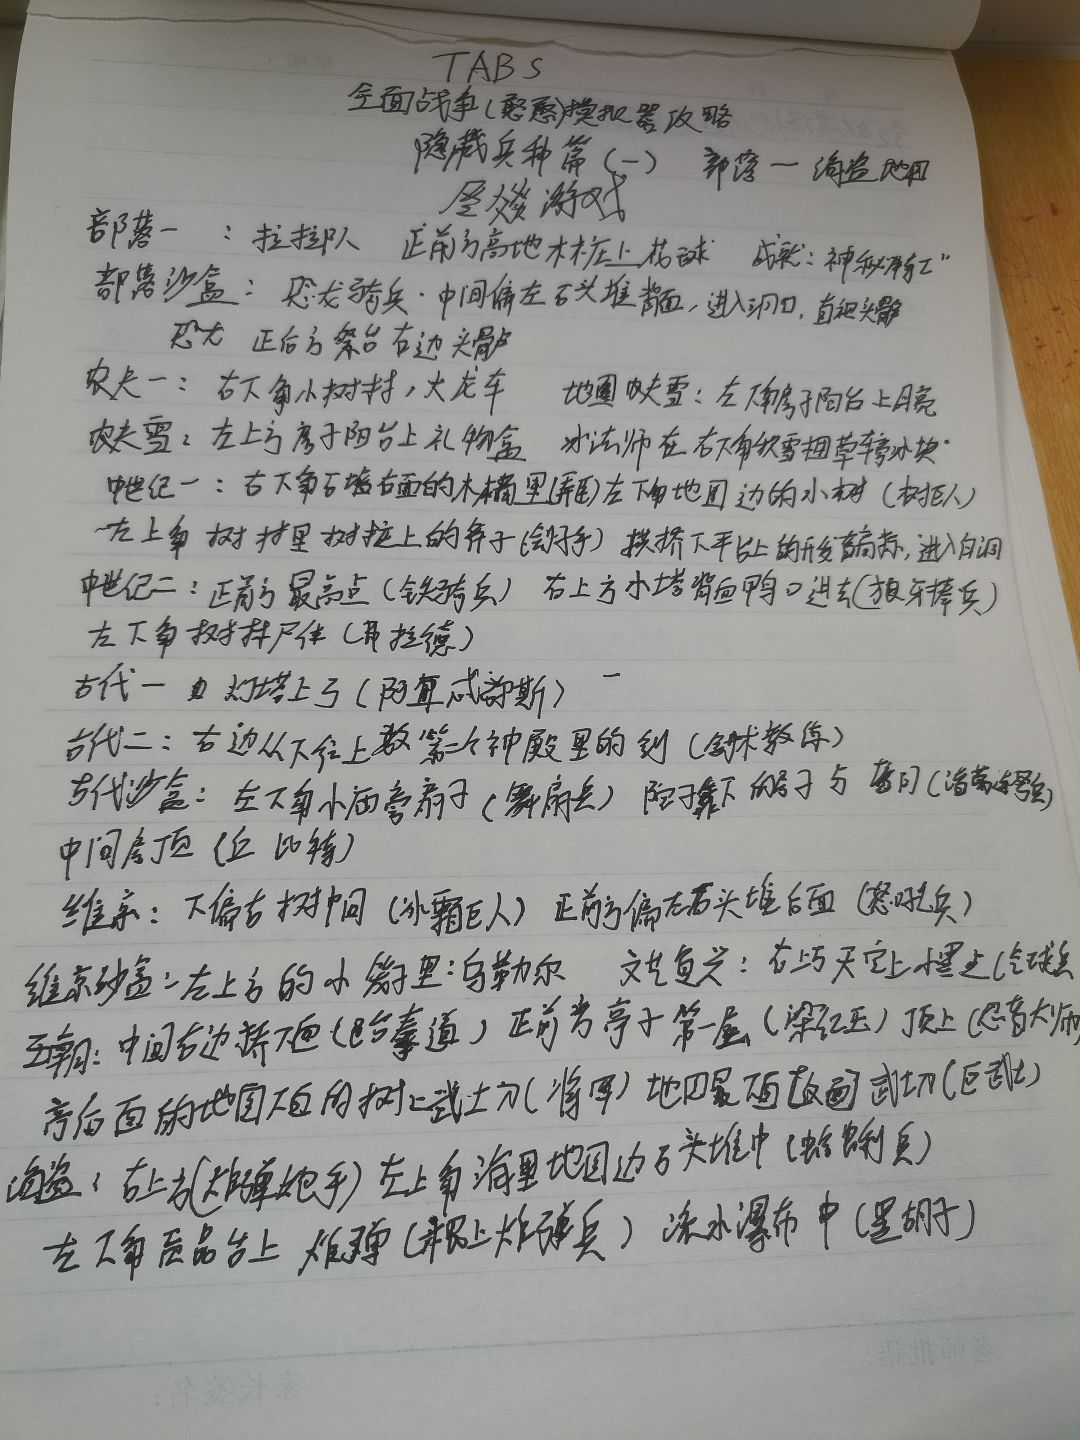 TABS
全面战争(憨憨)模拟器攻略
隐藏兵种篇(一) 部落一海盗地图
游戏
部落一：拉拉队 正前方高地木桩上花球 成就：神秘
部落沙盒：恐龙骑兵·中间偏左石头堆背面，进入洞口，直视头骨
恐龙 正后方祭台右边头骨
农夫一：右下角小树林，火龙车 地图农夫雪：左下角房子阳台上
农夫雪：左上方房子阳台上礼物盒 冰法师在右下角积雪捆草旁冰块·
中世纪一：右下角石墙右面的木桶里 左下角地图边的小树(树巨人)
左上角树林里树桩上的斧子(刽子手) 拱桥下平台上的
中世纪二：正前方最高点(铁骑兵) 右上方水塔背面 进去(狼牙棒兵)
左下角树林尸体(弗拉德)
古代一 灯塔上弓
古代二：右边从下往上数第二个神殿里的剑(剑术教练)
古代沙盒：左下角小酒旁扇子(舞扇兵)
中间房顶(丘比特)
维京：下偏右树中间(冰霜巨人) 正前方偏左石头堆后面(怒吼兵)
维京沙盒：左上方的小 里：乌勒尔 文艺复兴：右上方天空上
王朝：中间右边桥下面(跆拳道) 正前方亭子第一层 顶上(忍者大师)
亭后面的地图下面的树上武士刀(将军) 地图最下面 武士刀(巨武士)
海盗：右上方(炸弹炮手) 左上角海里地图边石头堆中
左下角 台上炸弹 淡水瀑布中(黑胡子)